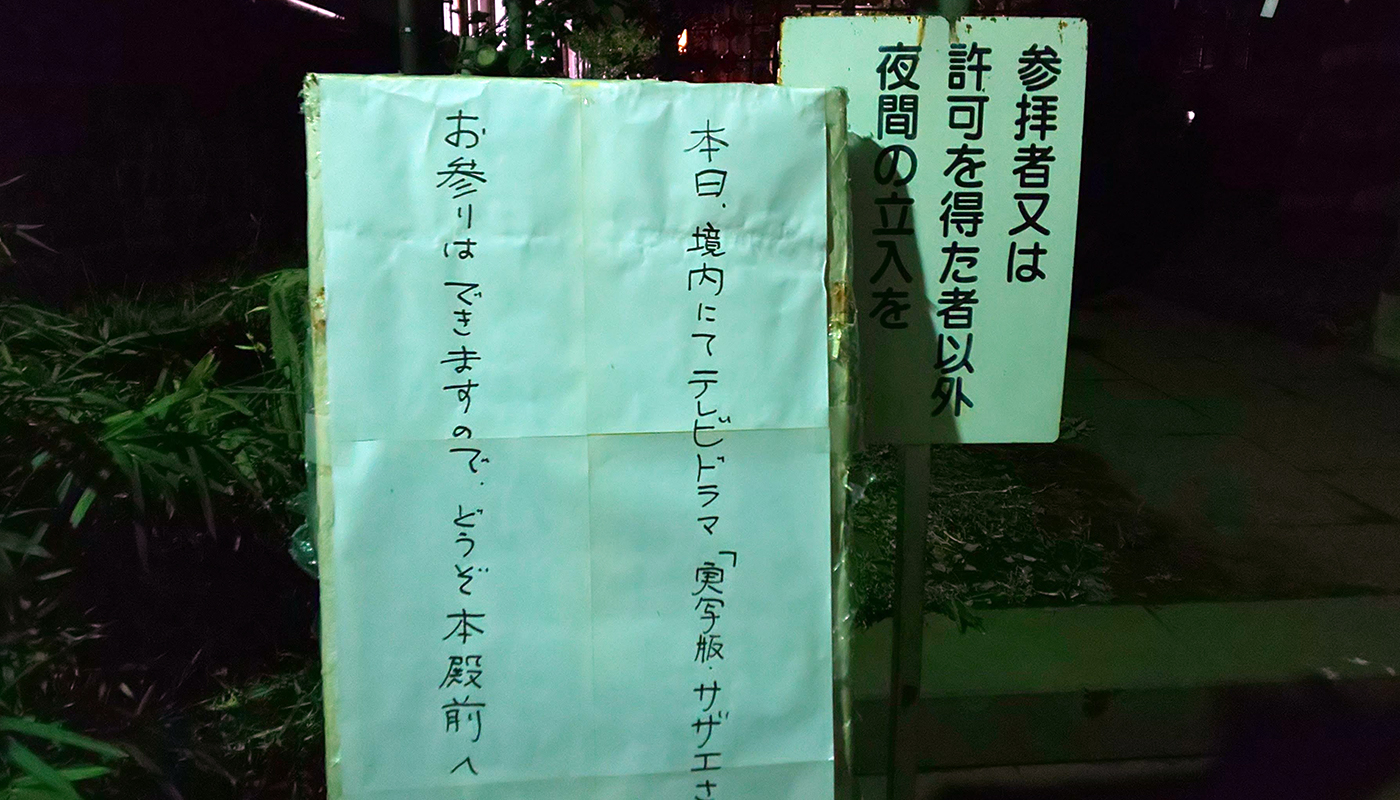 参拝者又は
許可を得た者以外
夜間の立入を
本日、境内にてテレビドラマ「実写版・サザエさ
お参りはできますので、どうぞ本殿前へ